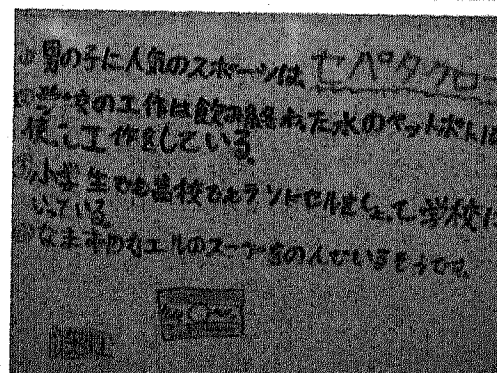 男の子に人気のスポーツは、セパタクロー
学校の工作は飲み終わった水のペットボトルは
使って工作をしている。
小学生でも高校でもランドセルをしょって学校に
いっている。
なまずのカエルのスープをのんでいるそうです。